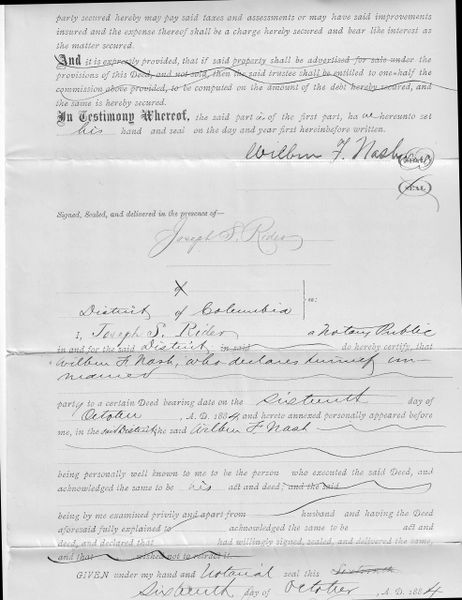 party secured hereby may pay said taxes and assessments or may have said improvements
insured and the expense thereof shall be a charge hereby secured and bear like interest as
the matter secured.
And it is expressly provided, that if said property shall be advertised for sale under the
provisions of this Deed, and not sold, then the said trustee shall be entitled to one-half the
commission above provided, to be computed on the amount of the debt hereby secured, and
the same is hereby secured.
In Testimony Whereof, the said part is of the first part, ha ve hereunto set
his hand and seal on the day and year first hereinbefore written.
Wilbur F. Nash SEAL
SEAL
Signed, Sealed, and delivered in the presence of—
Joseph S. Rider
X
District of Columbia ss:
I, Joseph S. Rider a Notary Public
in and for the said District, in said do hereby certify, that
Wilbur F. Nash, who declares himself un-
married
party to a certain Deed bearing date on the sixteenth day of
October, A. D. 1884 and hereto annexed personally appeared before
me, in the said District, the said Wilbur F Nash
being personally well known to me to be the person who executed the said Deed, and
acknowledged the same to be his act and deed; and the said
being by me examined privily and apart from husband and having the Deed
aforesaid fully explained to acknowledged the same to be act and
deed, and declared that had willingly signed, sealed, and delivered the same,
and that wished not to retract it.
GIVEN under my hand and Notarial seal this
Sixteenth day of October, A. D. 1884